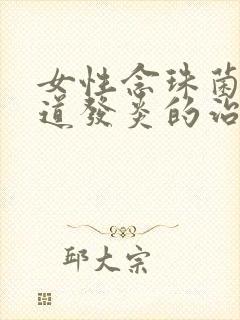 女性念珠菌
道發炎的治
邱大宗